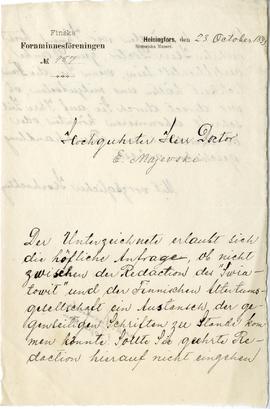 Finska
Fornminnesföreningen
№ 957
Helsingfors, den 23 October 1899
Historiska Museet.
Hochgeehrter Herr Doctor
E. Majevski
Der Unterzeichnete erlaubt sich
die höfliche Anfrage, ob nicht
zwischen der Redaction des "Swia-
towit" und der Finnischen Altertums-
gesellschaft ein Austausch der ge-
genseitigen Schriften zu Stande kom
men könnte. Sollte die geehrte Re-
daction hierauf nicht eingehen